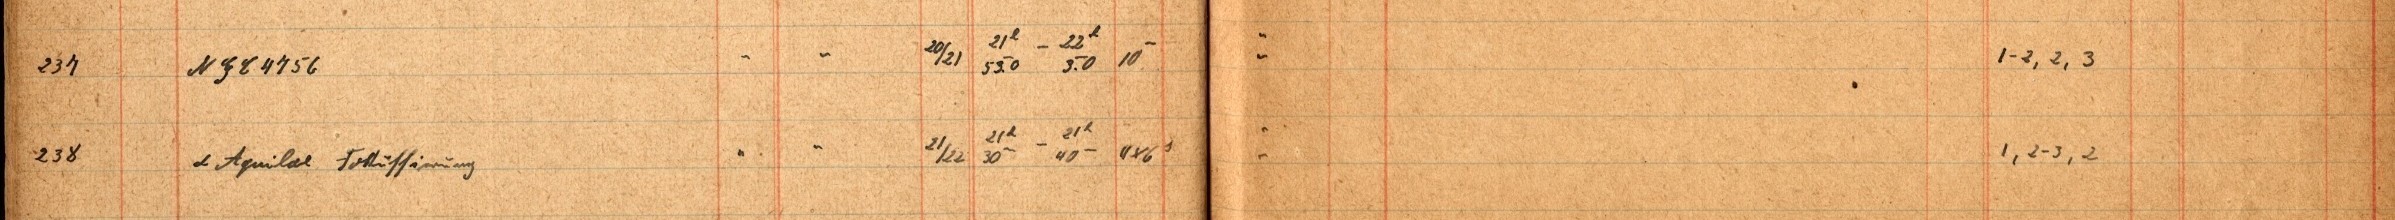 237 N G C 4756 " " 20/21 21h 53.0 - 22h 3.0 10m " " 1-2, 2, 3
238 α Aquilae Fokussierung " " 21/22 21h 30m - 21h 40m 4x6s " " 1, 2-3, 2